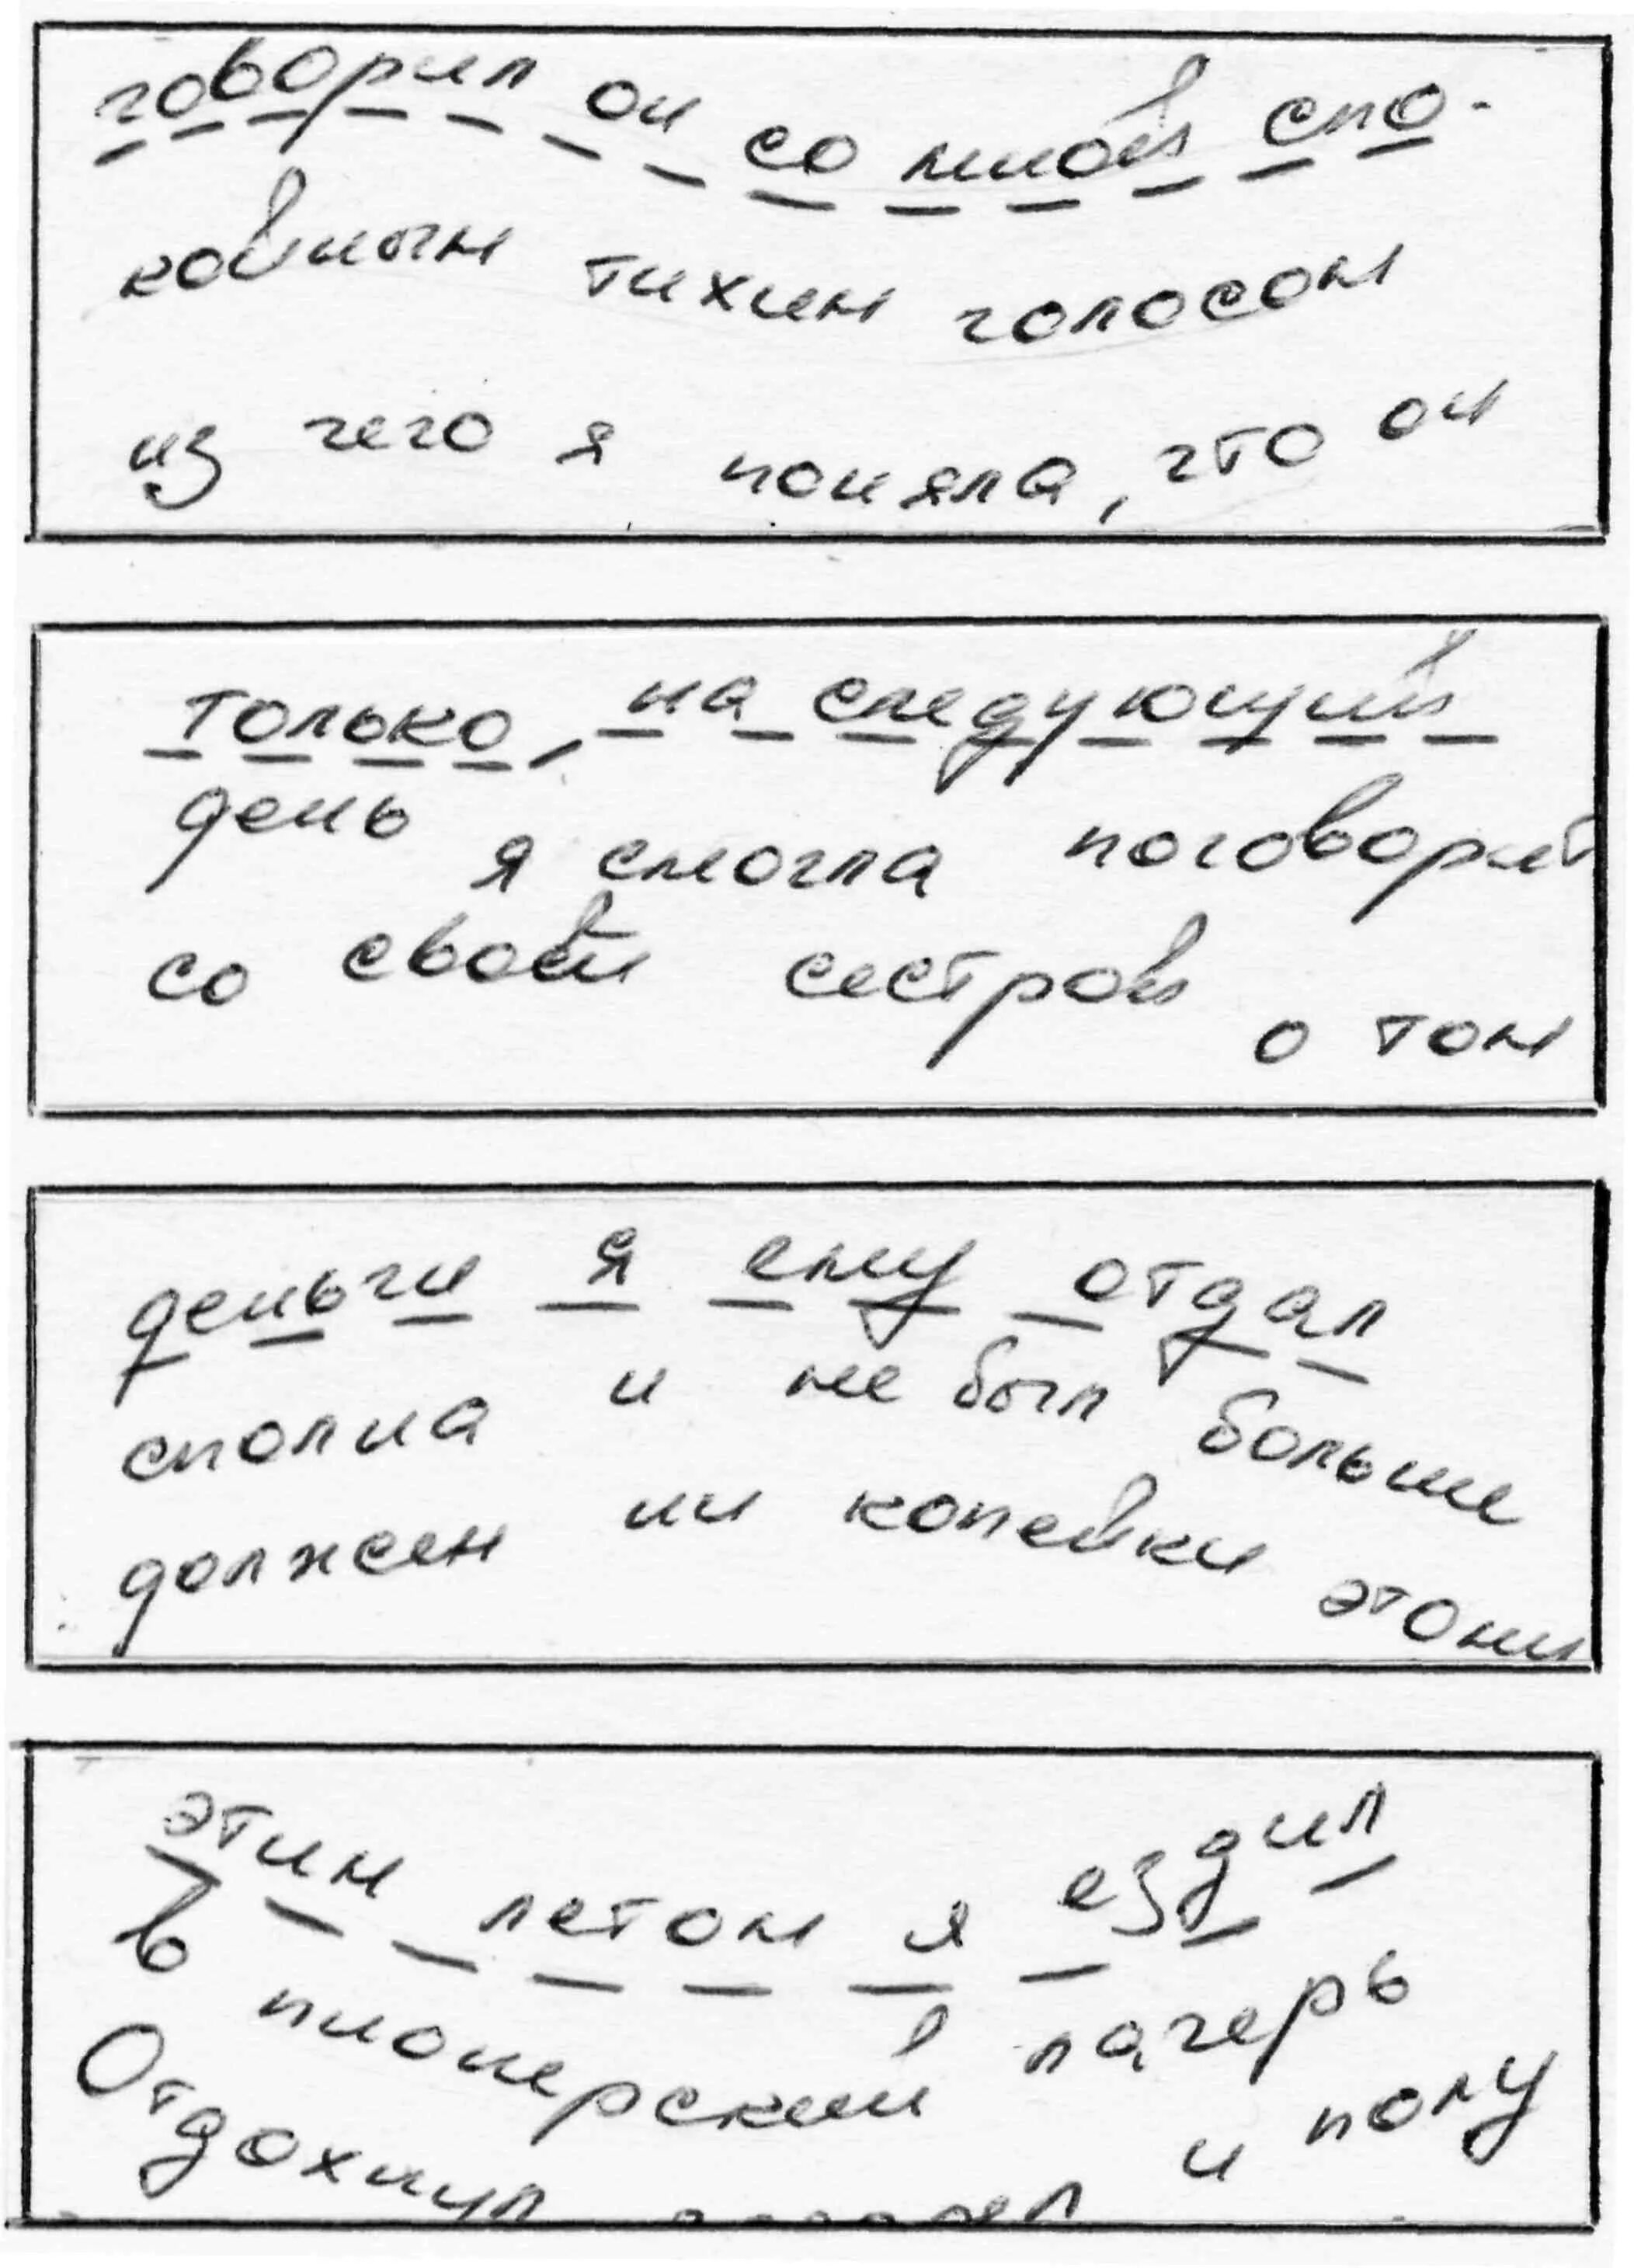 говорил он со мной спо-
койным тихим голосом
из чего я поняла, что он
только, на следующий
день я смогла поговорит
со своей сестрой о том
деньги я ему отдал
сполна и не был больше
должен ни копейки этому
этим летом я ездил
в пионерский лагерь
Отдохнул и полу